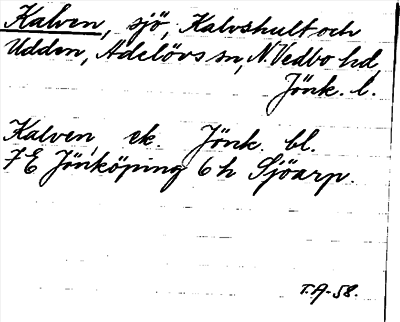 Kalven, sjö, Kalvshult och
Udden, Adelövs sn, N. Vedbo hd
Jönk. l.
Kalven, ek. Jönk. bl.
7E Jönköping 6h Sjöarp.
T.A-58.